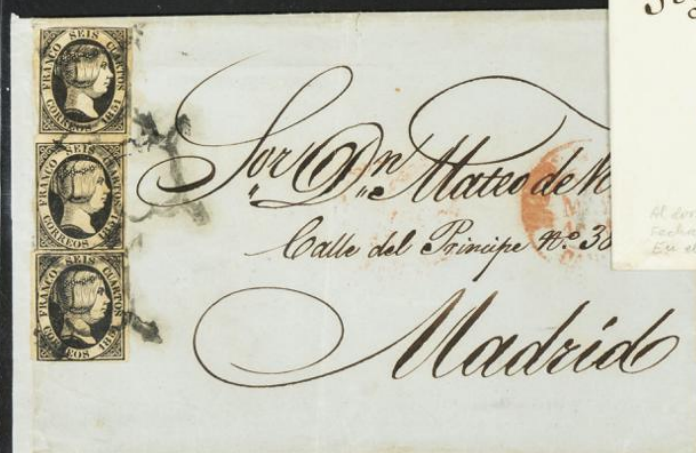 FRANCO SEIS CUARTOS
CORREOS 1851
FRANCO SEIS CUARTOS
CORREOS 1851
FRANCO SEIS CUARTOS
CORREOS 18
Sor Dn Mateo de
Calle del Principe No. 30
Madrid